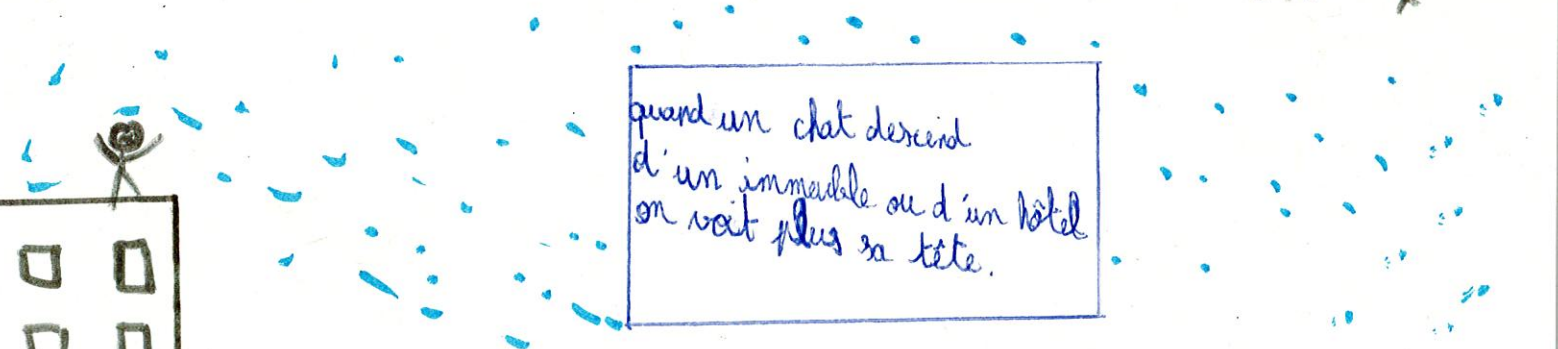 quand un chat descend
d'un immeuble ou d'un hôtel
on voit plus sa tête.